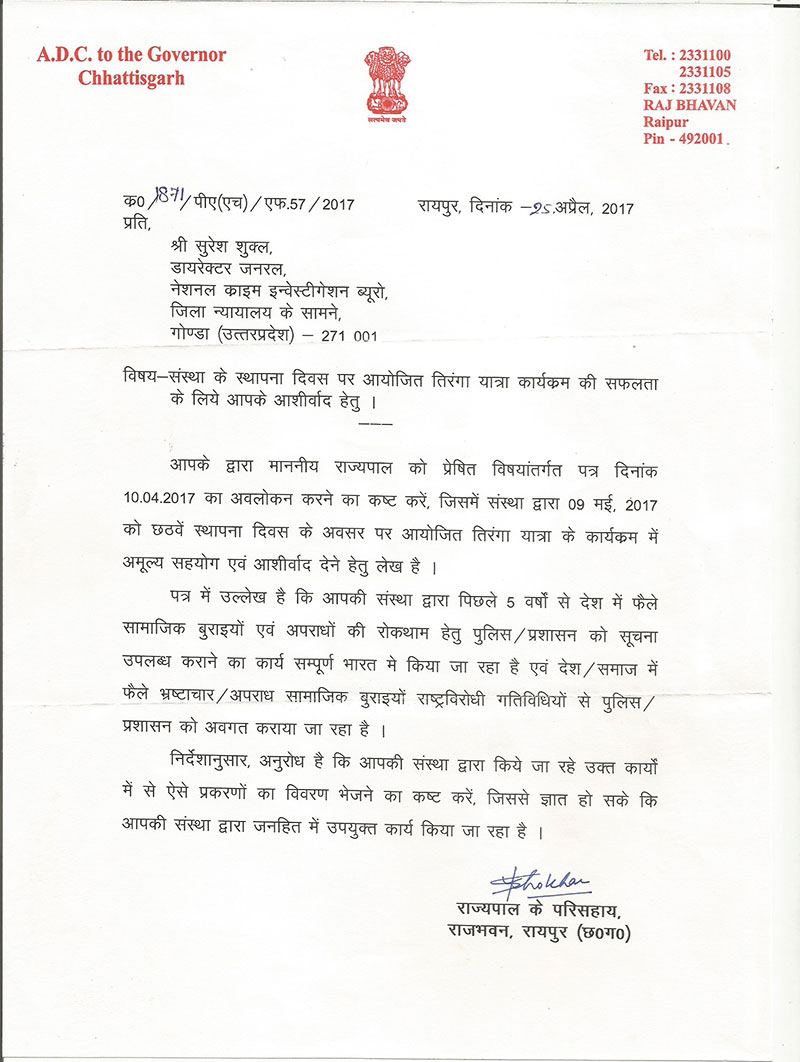 A.D.C. to the Governor
Chhattisgarh
सत्यमेव जयते
Tel. : 2331100
2331105
Fax : 2331108
RAJ BHAVAN
Raipur
Pin - 492001.
क0/1871/पीए(एच)/एफ.57/2017 रायपुर, दिनांक -25.अप्रैल, 2017
प्रति,
श्री सुरेश शुक्ल,
डायरेक्टर जनरल,
नेशनल क्राइम इन्वेस्टीगेशन ब्यूरो,
जिला न्यायालय के सामने,
गोण्डा (उत्तरप्रदेश) – 271 001
विषय–संस्था के स्थापना दिवस पर आयोजित तिरंगा यात्रा कार्यक्रम की सफलता
के लिये आपके आशीर्वाद हेतु ।
–––
आपके द्वारा माननीय राज्यपाल को प्रेषित विषयांतर्गत पत्र दिनांक
10.04.2017 का अवलोकन करने का कष्ट करें, जिसमें संस्था द्वारा 09 मई, 2017
को छठवें स्थापना दिवस के अवसर पर आयोजित तिरंगा यात्रा के कार्यक्रम में
अमूल्य सहयोग एवं आशीर्वाद देने हेतु लेख है ।
पत्र में उल्लेख है कि आपकी संस्था द्वारा पिछले 5 वर्षों से देश में फैले
सामाजिक बुराइयों एवं अपराधों की रोकथाम हेतु पुलिस/प्रशासन को सूचना
उपलब्ध कराने का कार्य सम्पूर्ण भारत मे किया जा रहा है एवं देश/समाज में
फैले भ्रष्टाचार/अपराध सामाजिक बुराइयों राष्ट्रविरोधी गतिविधियों से पुलिस/
प्रशासन को अवगत कराया जा रहा है ।
निर्देशानुसार, अनुरोध है कि आपकी संस्था द्वारा किये जा रहे उक्त कार्यों
में से ऐसे प्रकरणों का विवरण भेजने का कष्ट करें, जिससे ज्ञात हो सके कि
आपकी संस्था द्वारा जनहित में उपयुक्त कार्य किया जा रहा है ।
राज्यपाल के परिसहाय,
राजभवन, रायपुर (छ0ग0)